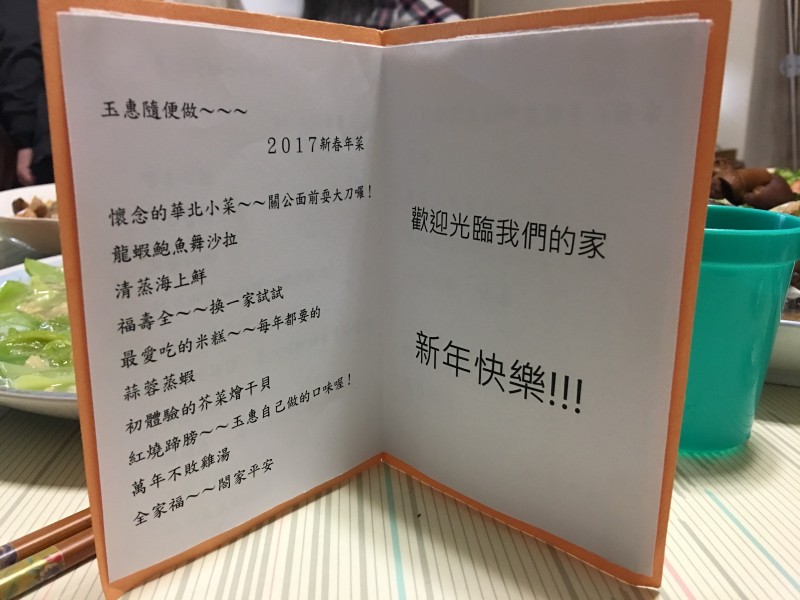 玉惠隨便做～～～
2017新春年菜
懷念的華北小菜～～關公面前耍大刀喔！
龍蝦鮑魚舞沙拉
清蒸海上鮮
福壽全～～換一家試試
最愛吃的米糕～～每年都要的
蒜蓉蒸蝦
初體驗的芥菜燴干貝
紅燒蹄膀～～玉惠自己做的口味喔！
萬年不敗雞湯
全家福～～閤家平安
歡迎光臨我們的家
新年快樂!!!